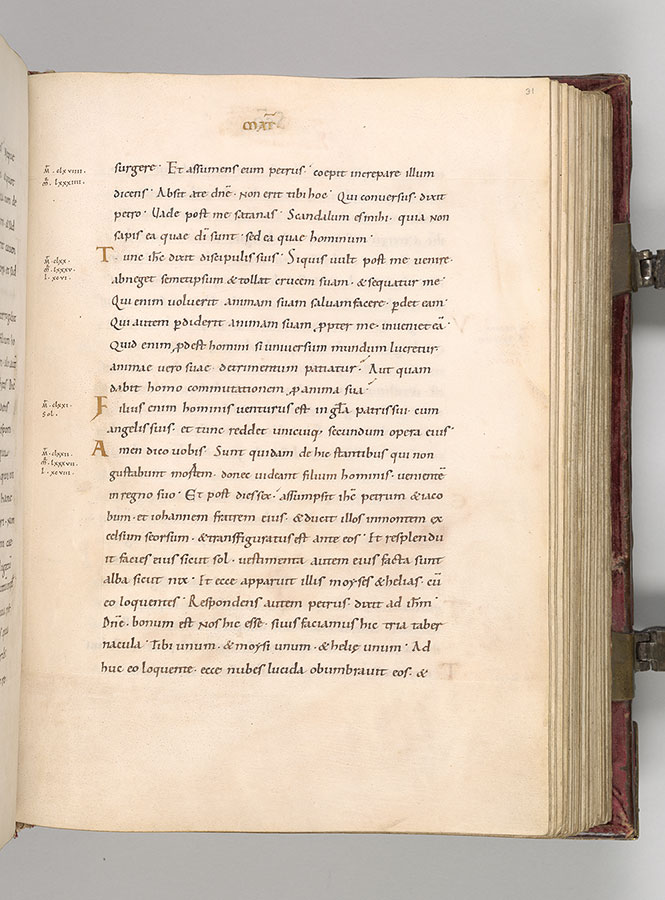 31
MAT
surgere · Et assumens eum petrus · coepit increpare illum
m̄ · clxviiii ·
m̄r · lxxxiiii ·
dicens · Absit ate dn̄e · non erit tibi hoc · Qui conversus · dixit
petro · Uade post me satanas · Scandalum es mihi · quia non
sapis ea quae dī sunt · sed ea quae hominum ·
m̄ · clxx ·
m̄r · lxxxv ·
l · xcvi ·
Tunc ihc̄ dixit discipulis suis · Siquis vult post me venire ·
abneget semetipsum & tollat crucem suam · & sequatur me ·
Qui enim voluerit animam suam salvam facere · ꝑdet eam ·
Qui autem ꝑdiderit animam suam ꝓpter me · inveniet eā ·
Quid enim ꝓdest homini si universum mundum lucretur ·
animae vero suae detrimentum patiatur · Aut quam
dabit homo commutationem ꝓ anima sua ·
m̄ · clxxi ·
sol ·
Filius enim hominis venturus est in gl̄a patris sui · cum
angelis suis · et tunc reddet unicuiq; secundum opera eius ·
m̄ · clxxii ·
m̄r · lxxxvii ·
l · xcviii ·
Amen dico vobis · Sunt quidam de hic stantibus qui non
gustabunt mortem · donec videant filium hominis · venientē
in regno suo · Et post dies sex · assumpsit ihc̄ petrum & iaco
bum · et iohannem fratrem eius · & ducit illos inmontem ex
celsum seorsum · & transfiguratus est ante eos · Et resplendu
it facies eius sicut sol · vestimenta autem eius facta sunt
alba sicut nix · Et ecce apparuit illis moyses & helias · cū
eo loquentes · Respondens autem petrus · dixit ad ihm̄ ·
Dn̄e · bonum est nos hic esse · si vis faciamus hic tria taber
nacula · Tibi unum · & moysi unum · & helię unum · Ad
huc eo loquente · ecce nubes lucida obumbravit eos · &